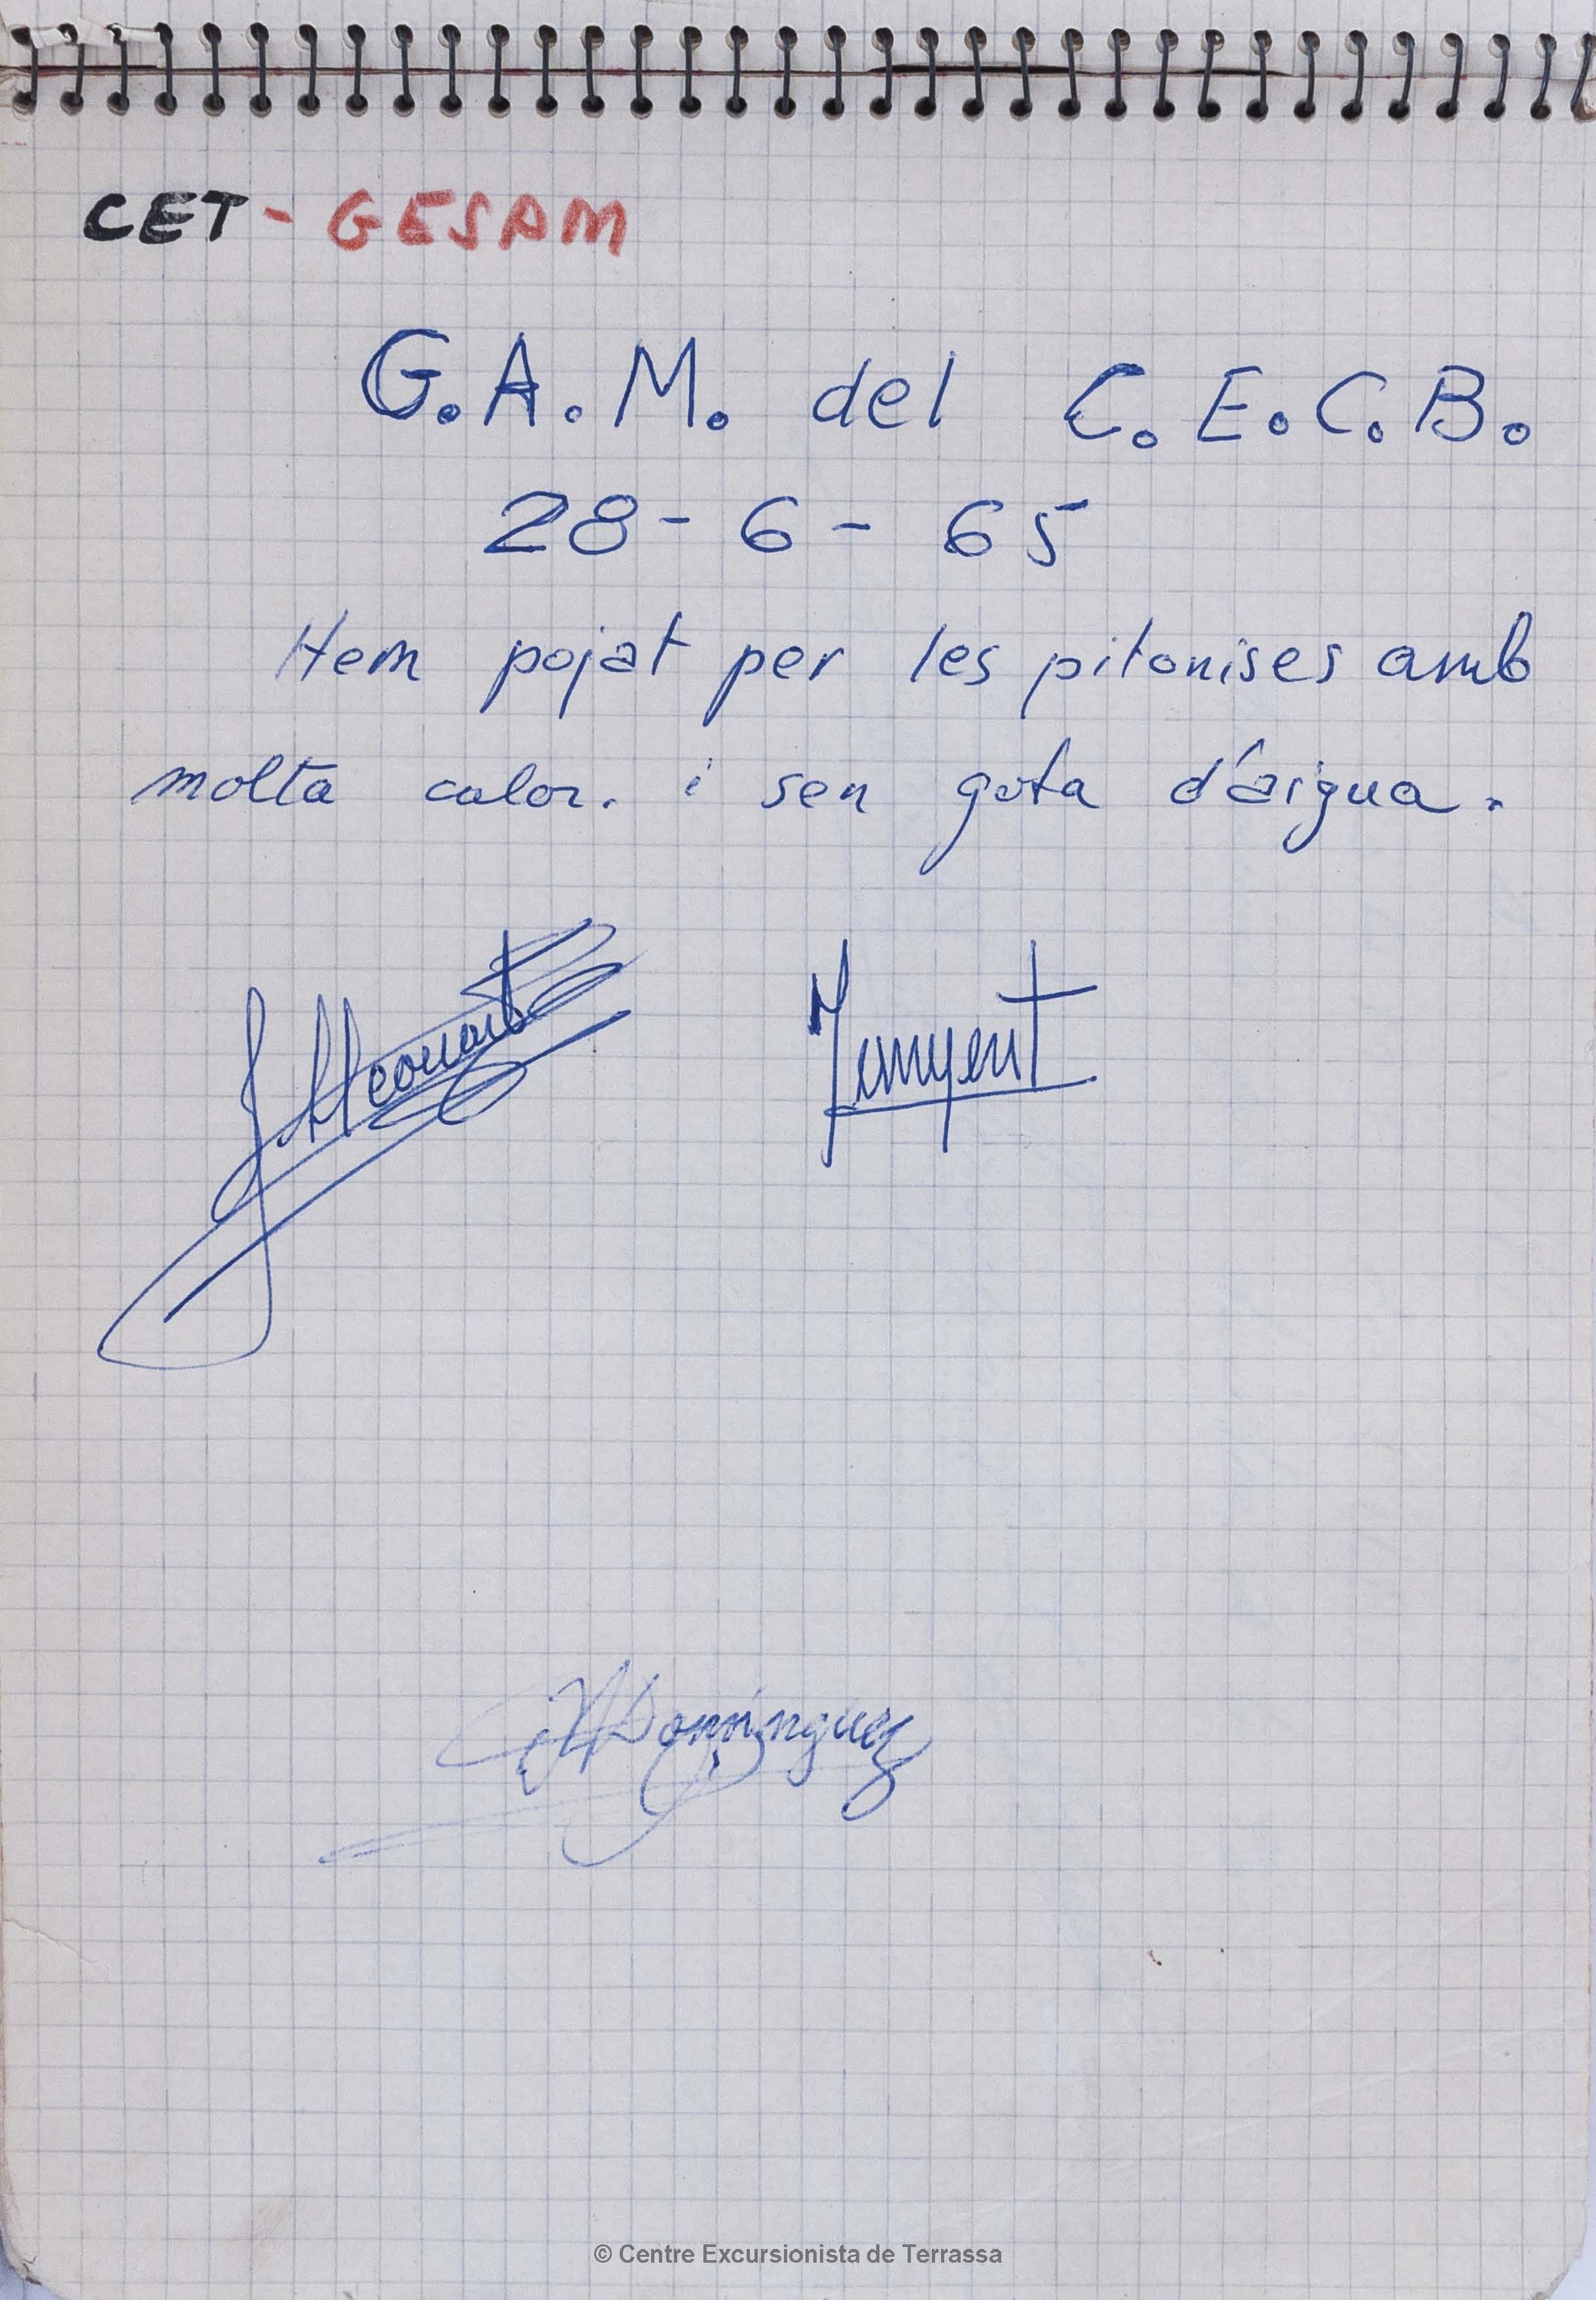 CET - GESAM
G.A.M. del C.E.C.B.
28 - 6 - 65
Hem pojat per les pitonises amb
molta calor. i sen gota d'aigua.
Junyent
Domínguez
© Centre Excursionista de Terrassa